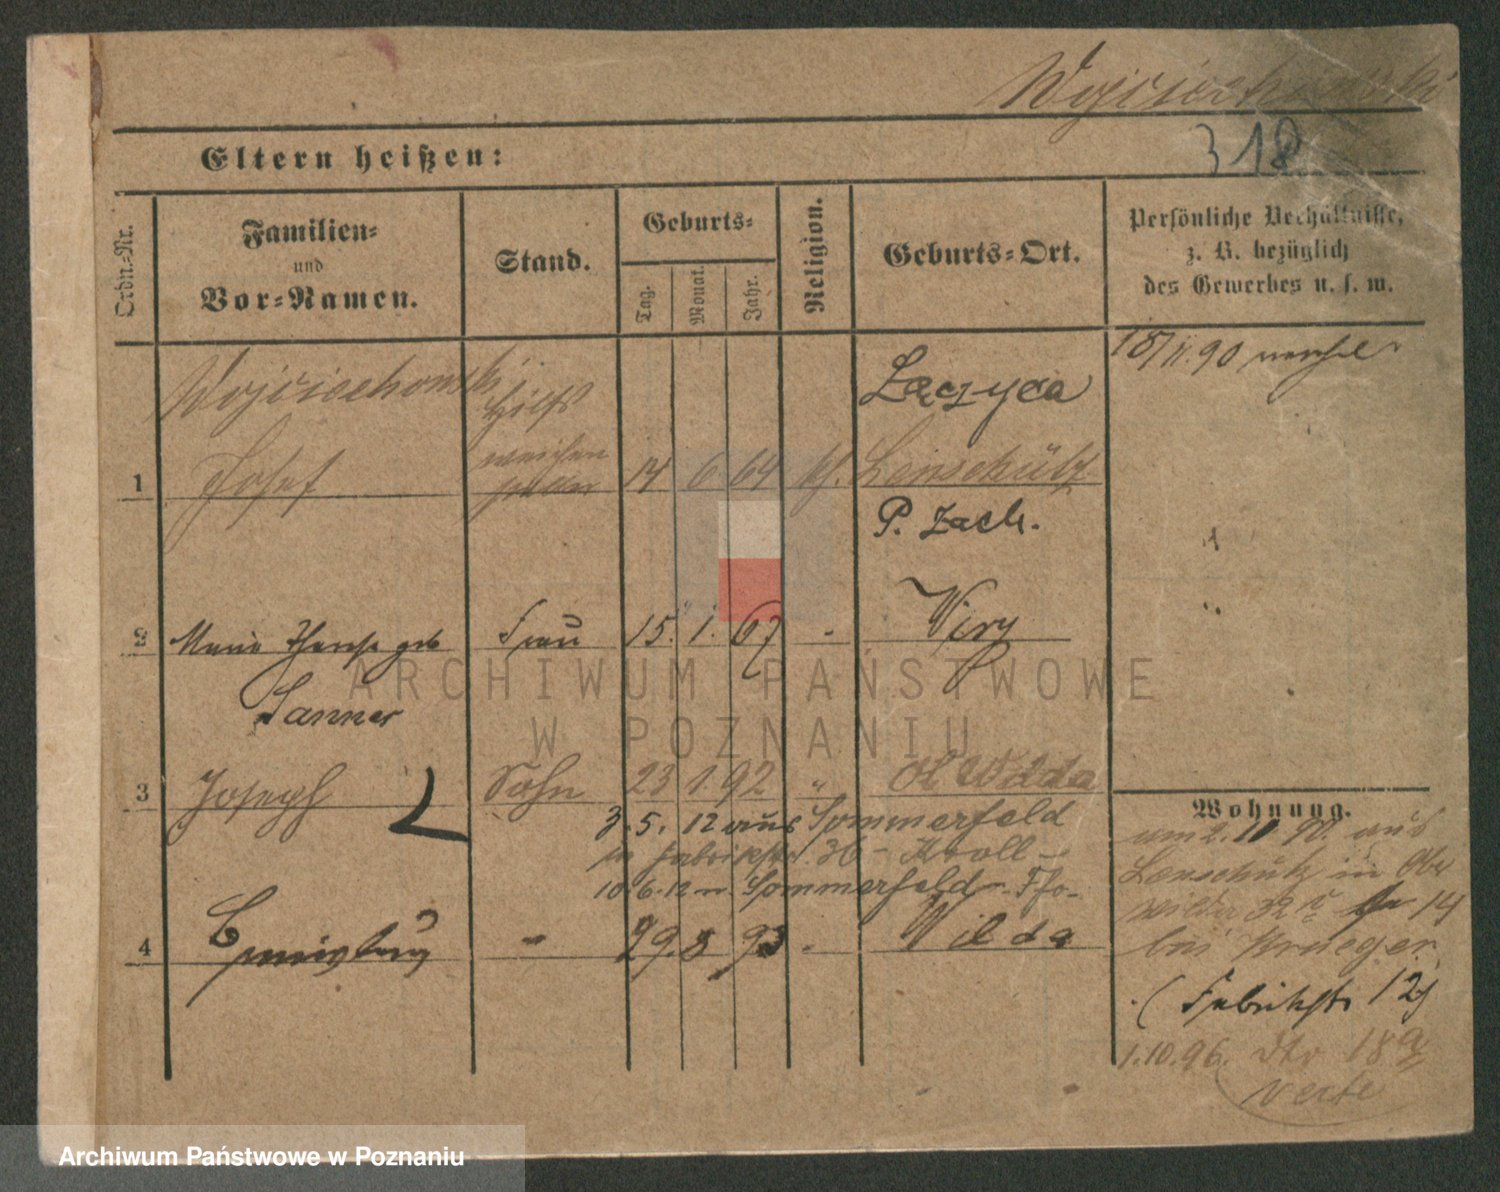 Wojciechowski
318
Eltern heißen:
Ordn.-Nr.
Familien-
und
Vor-Namen.
Stand.
Geburts-
Tag.
Monat.
Jahr.
Religion.
Geburts-Ort.
Persönliche Verhältnisse,
z. B. bezüglich
des Gewerbes u. s. w.
Wojciechowski
Hilfs
Łęczyca
18/11.90
1 Josef
weichen
14 6 64 kf. Lenschütz
P. Zach.
2 Marie geb
Frau 15. 1. 67 -
Viry
Sanner
3 Joseph Sohn 23 1. 92 " Ob Wilda
3. 5. 12 aus Sommerfeld
in Fabrikstr. 36 - Kroll -
10.6.12 n. Sommerfeld -
4 - 29. 8 93 - Wilda
Wohnung.
am 2. 11 90. aus
Lenschütz in Ober
wilda 32
14
bei Krueger
(Fabrikstr 12)
1.10.96. dto 18a
verte
ARCHIWUM PAŃSTWOWE
W POZNANIU
Archiwum Państwowe w Poznaniu